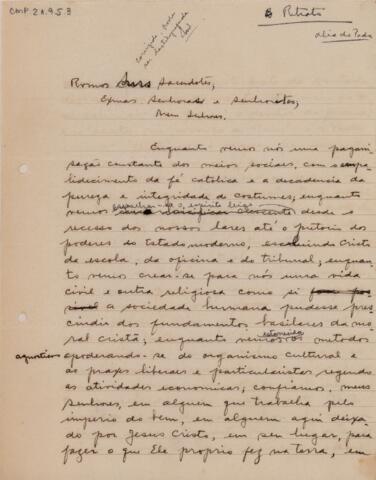 CMP 2.1.9.5.8
Retrato
Revmos Snrs Sacerdotes,
Exmas Senhoras e Senhoritas,
Meus Senhores.
Enquanto vemos nós uma pagani-
sação constante dos meios sociais, com o empa-
lidecimento da fé catolica e a decadencia da
pureza e integridade de costumes, enquanto
vemos espirito leigo desde o
recesso dos nossos lares até o pretorio dos
poderes do Estado moderno, excluindo Cristo
da escola, da oficina e do tribunal; enquan-
to vemos crear-se para nós uma vida
civil e outra religiosa como si
a sociedade humana pudesse pres-
cindir dos fundamentos basilares da mo-
ral cristã; enquanto vemos os metodos
agnosticos apoderando-se do organismo cultural e
as praxes liberais e particularistas regendo
as atividades economicas; confiamos, meus
Senhores, em alguem que trabalha pelo
imperio do bem, em alguem aqui deixa-
do por Jesus Cristo, em seu lugar, para
fazer o que Ele proprio fez na terra, em